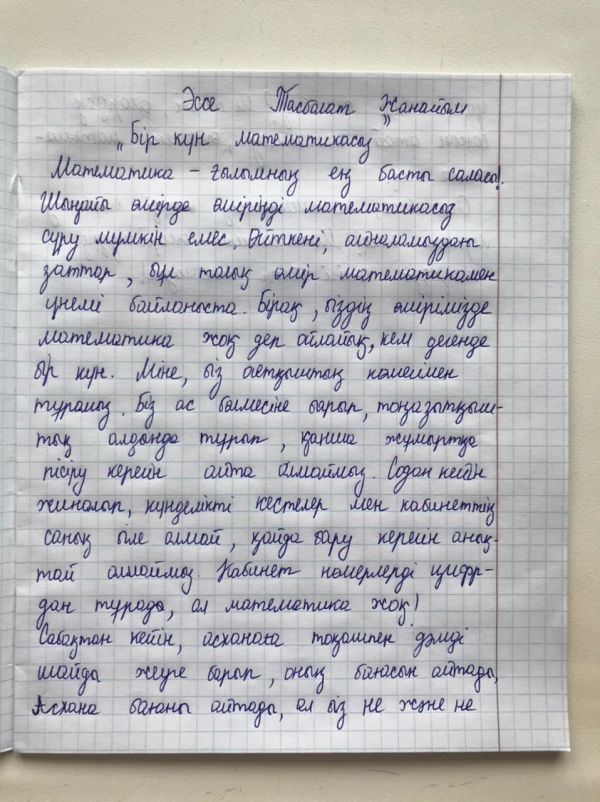 Эссе Тасбагат Жанайым
„Бір күн математикасыз”
Математика – ғылымның ең басты саласы!
Шынайы өмірде өміріңді математикасыз
сүру мүмкін емес, Өйткені, айналамыздағы
заттар, бұл толық өмір математикамен
үнемі байланыста. Бірақ, біздің өмірімізде
математика жоқ деп ойлайық, кем дегенде
бір күн. Міне, біз аспқыштың көмегімен
тұрамыз. Біз ас бөлмесіне барып, тоңазытқыш-
тың алдында тұрып, қанша жұмыртқа
пісіру керегін айта алмаймыз. Содан кейін
жиналып, күнделікті кестелер мен кабинеттің
санын біле алмай, қайда бару керегін анық-
тай алмаймыз. Кабинет нөмерлерді цифр-
дан тұрады, ал математика жоқ!
Сабақтан кейін, асханаға тоқашпен дәмді
шайды жеуге барып, оның бағасын айтады,
Асхана бағаны айтады, ал біз не және не